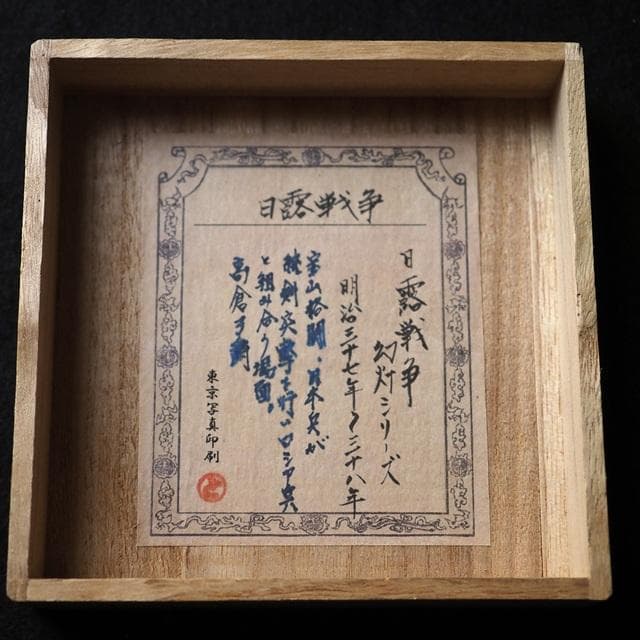 日露戦争
日露戦争
幻灯シリーズ
明治三十七年〜三十八年
宝山格闘、日本兵が
銃剣突撃を行いロシア兵
と組み合う場面。
高倉子爵
東京写真印刷